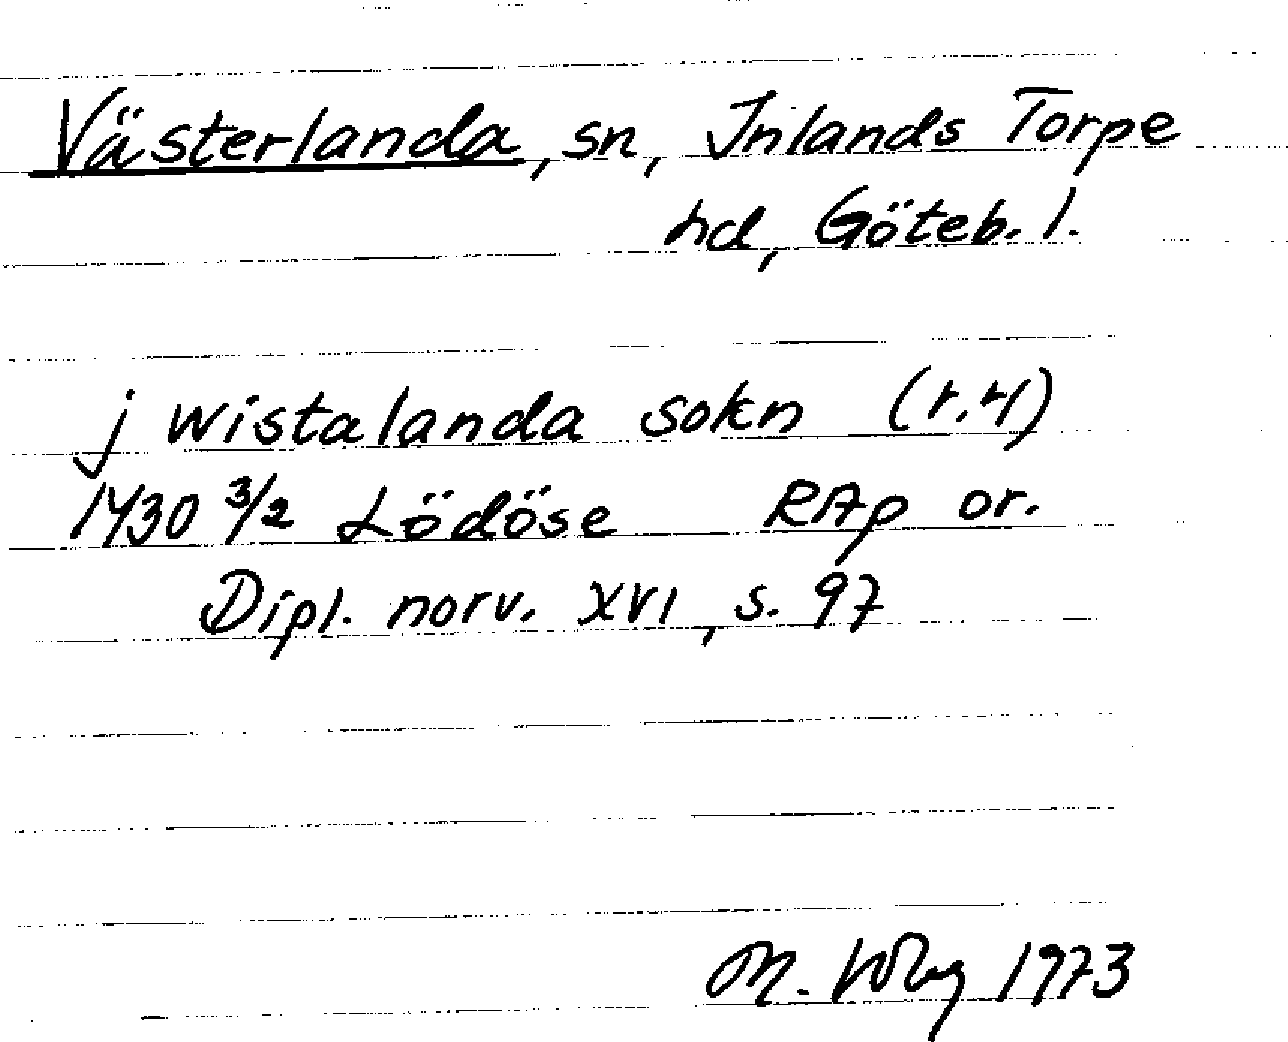 Västerlanda, sn, Inlands Torpe
hd, Göteb. l.
j wistalanda sokn (r.4)
1430 3/2 Lödöse RAp or.
Dipl. norv. XVI, s. 97
M. 1973